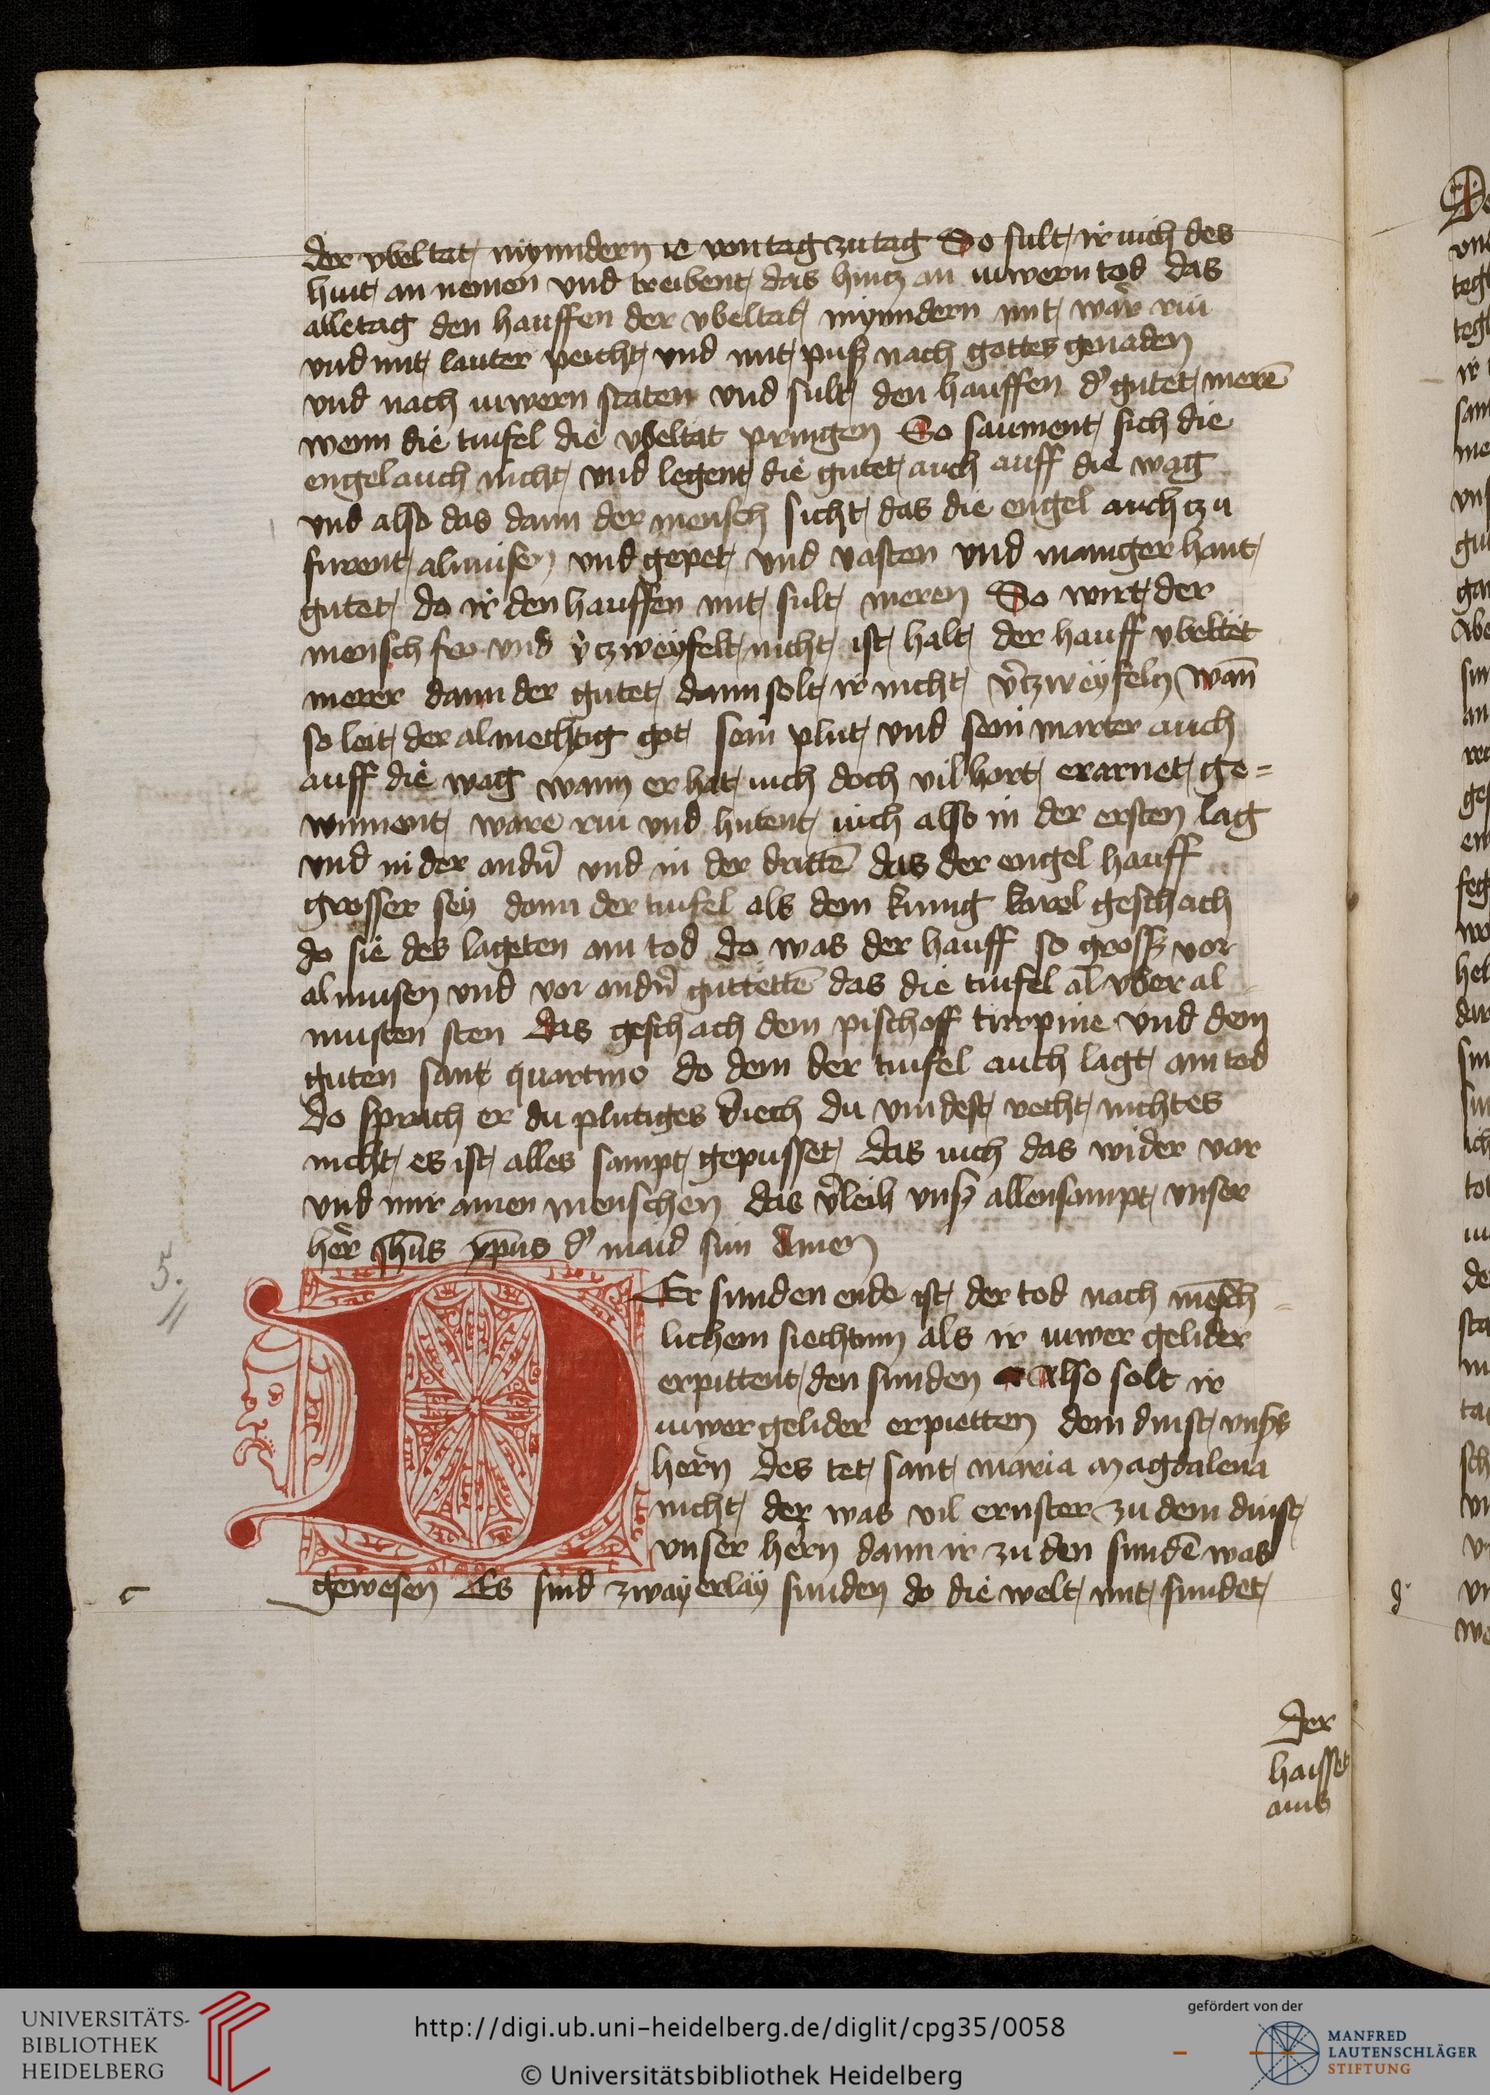 der vbeltat mynndern ie von tag zu tag So sult ir uich des
huit an nemen und treibent das hintz an iuwern tod das
alletag den hauffen der vbeltat mynndern mit warͤ riu
vnd mit lauter peicht vnd mit puß nach gottes genaden
vnd nach iuwern staten vnd sult den hauffen d' gutet merē
wenn die tiufel die vbeltat pringen So saument sich die
engel auch nicht vnd legent die gutet auch auff die wag
vnd also das dann der mensch sicht das die engel auch tzu
furent almusen vnd gepet vnd vasten vnd maniger hant
gutet do ir den hauffen mit sult meren So wirt der
mensch fro vnd v̓tzweyfelt nicht ist halt der hauff vbeltet
merer dann der gutet dann solt ir nicht v̓tzweyfeln wan̄
so leit der almechtig got sein plut vnd sein marter auch
auff die wag wann er hat iuch doch vil hort erarnet ge=
winnent ware riu vnd hutent iuch also in der ersten lag
vnd in der and'n vnd in der drittē das der engel hauff
grosser sey dann der tiufel als dem kunig karel geschach
do sie des lageten am tod do was der hauff so groß vor
almusen vnd vor and'n guttettē das die tiufel al vber al
musten sten Das geschach dem pischoff turpine vnd dem
guten sant quartino do dem der tiufel auch lagt am tod
do sprach er du plutiges viech du vindest recht nichtes
nicht es ist alles sampt gepusset das iuch das wider var
vnd mir armen menschen das v̓leih vnß allensampt vnser
her ihūs xp̄us d' maid sun Amen
DEr sunden ende ist der tod nach mēsch
lichem siechtum als ir iuwer gelider
erpittent den sunden Also solt ir
iuwer gelider erpietten dem dinst vnsers
hern des tet sant maria magdalena
nicht der was vil ernster zu dem dinst
vnser hern dann ir zu den sundē was
gewesen Es sind zwayerlay sunden do die welt mit sundet
5.
c
Der
haisset
ains
UNIVERSITÄTS-
BIBLIOTHEK
HEIDELBERG
http://digi.ub.uni-heidelberg.de/diglit/cpg35/0058
© Universitätsbibliothek Heidelberg
gefördert von der
MANFRED
LAUTENSCHLÄGER
STIFTUNG